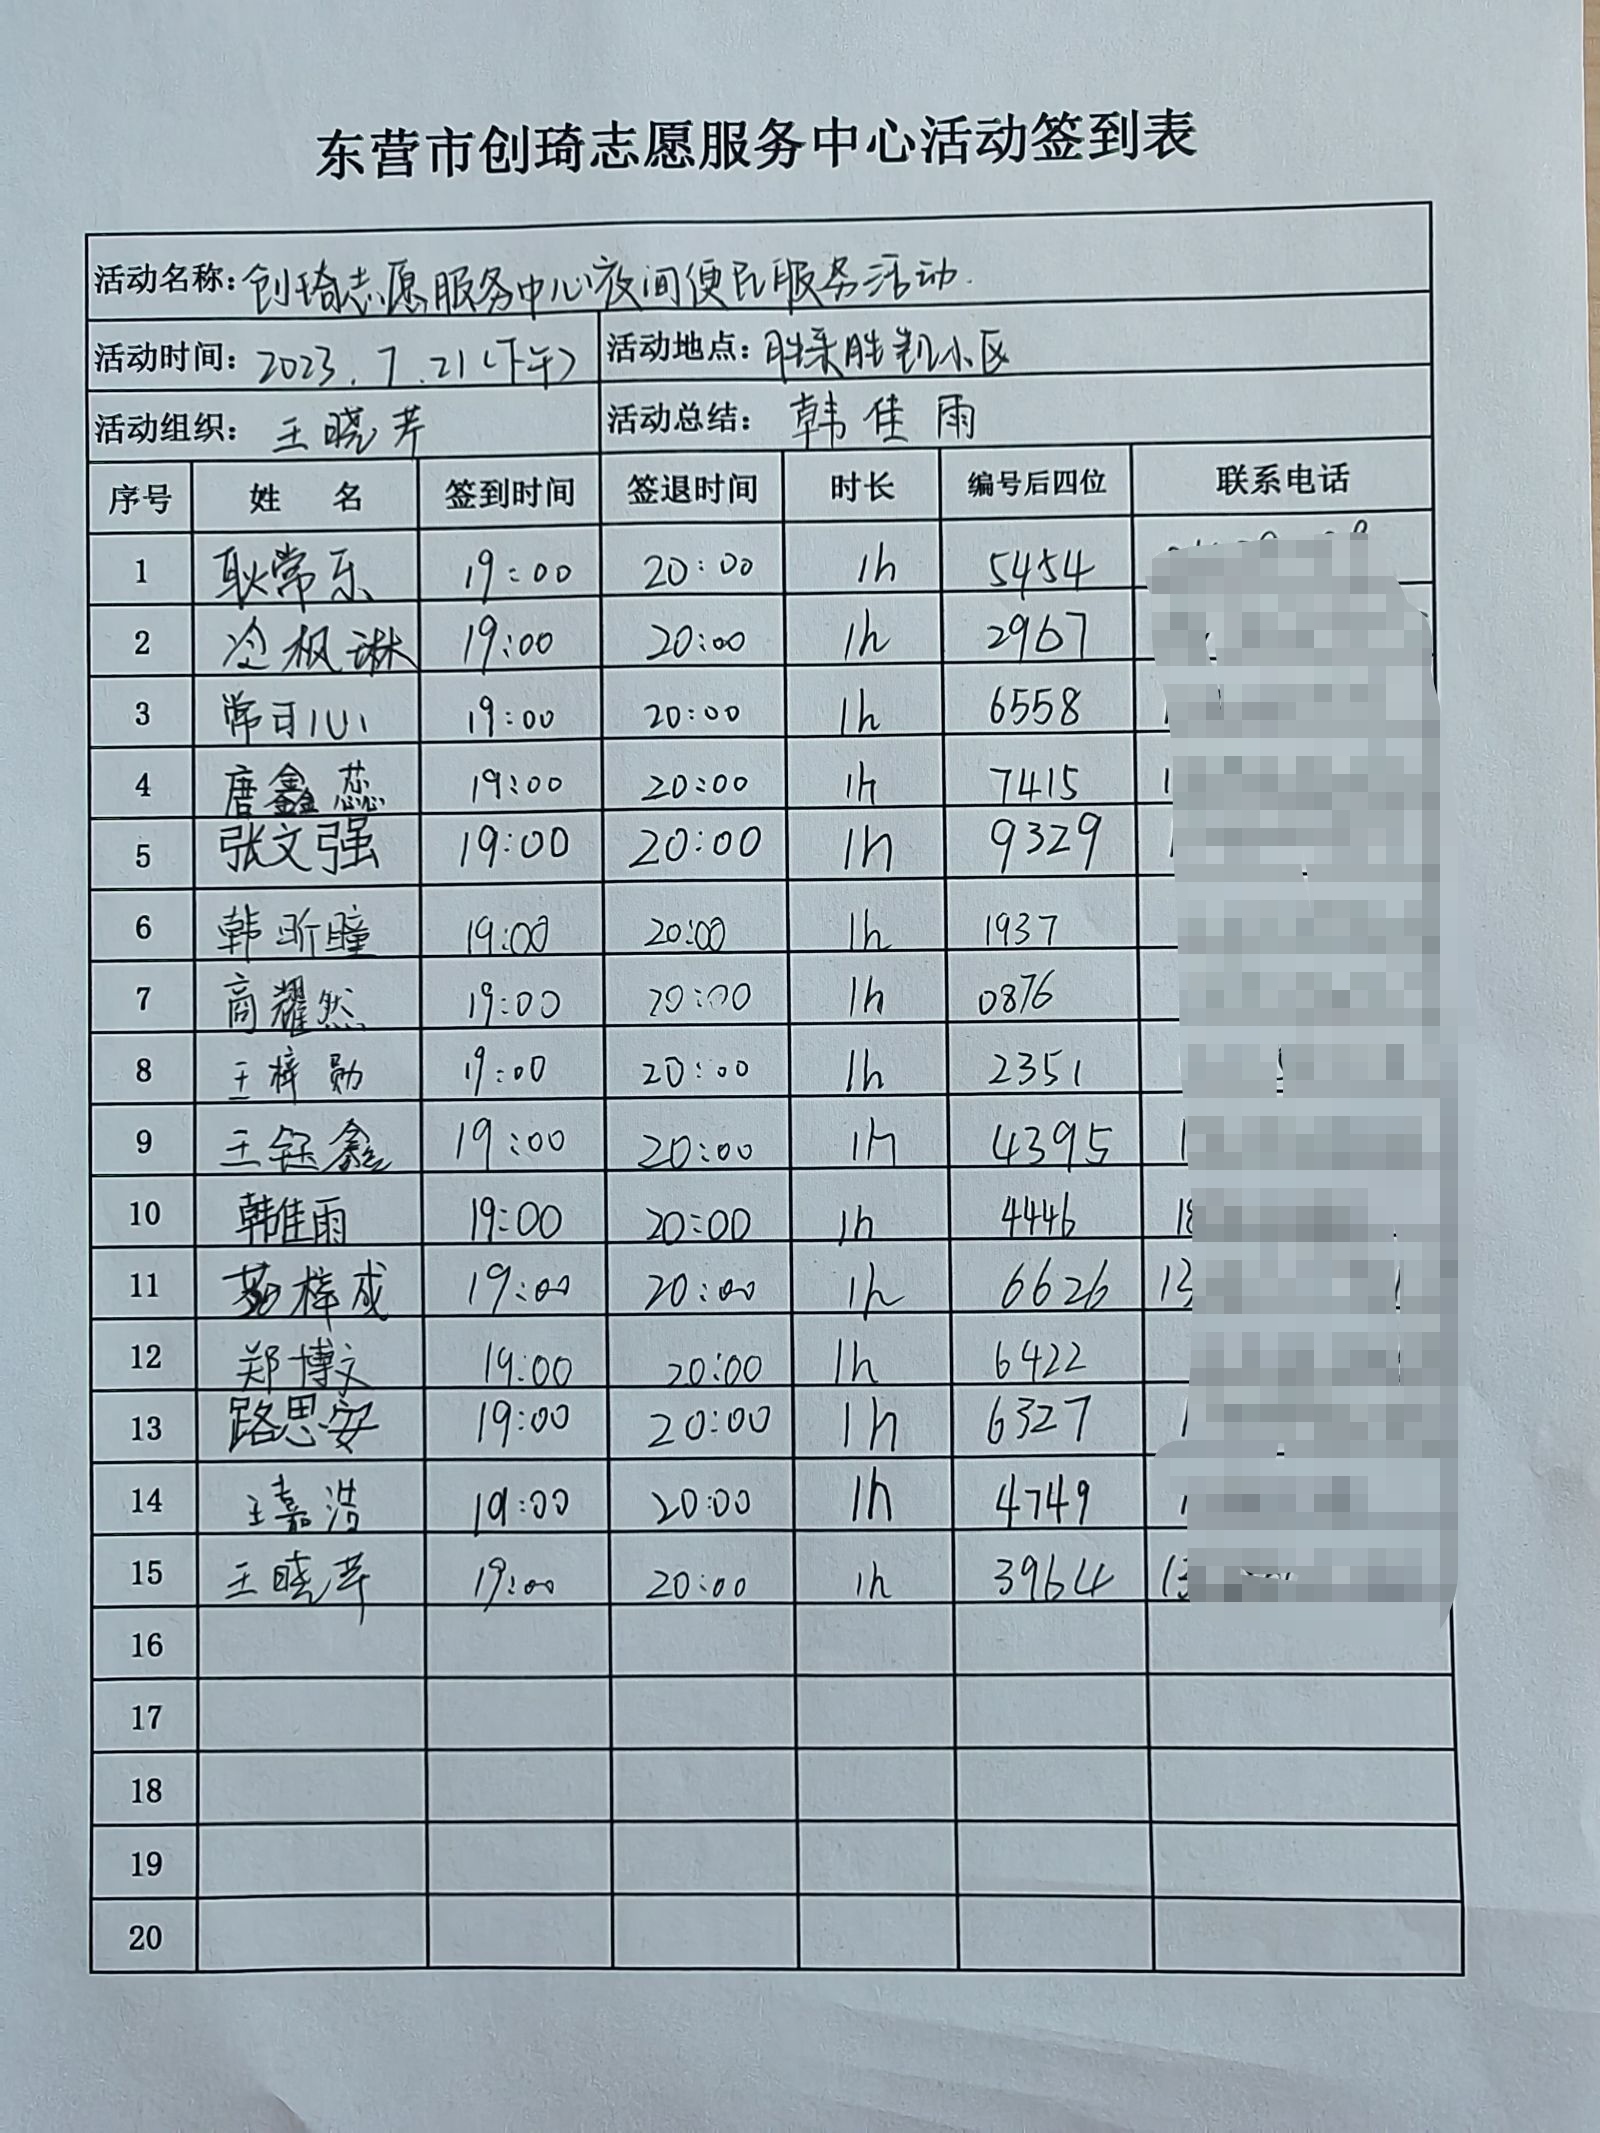 东营市创琦志愿服务中心活动签到表
活动名称：创琦志愿服务中心夜间便民服务活动.
活动时间：2023.7.21(下午) 活动地点：胜采胜凯小区
活动组织：王晓芹 活动总结：韩佳雨
序号 姓 名 签到时间 签退时间 时长 编号后四位 联系电话
1 耿常乐 19:00 20:00 1h 5454
2 冷枫琳 19:00 20:00 1h 2967
3 常 19:00 20:00 1h 6558
4 唐鑫蕊 19:00 20:00 1h 7415 1
5 张文强 19:00 20:00 1h 9329
6 韩昕曈 19:00 20:00 1h 1937
7 商耀然 19:00 20:00 1h 0876
8 王梓勋 19:00 20:00 1h 2351
9 王钰鑫 19:00 20:00 1h 4395 1
10 韩佳雨 19:00 20:00 1h 4446 18
11 梓成 19:00 20:00 1h 6626 13
12 郑博文 19:00 20:00 1h 6422
13 路思安 19:00 20:00 1h 6327 1
14 王嘉浩 19:00 20:00 1h 4749 1
15 王晓芹 19:00 20:00 1h 3964 13
16
17
18
19
20